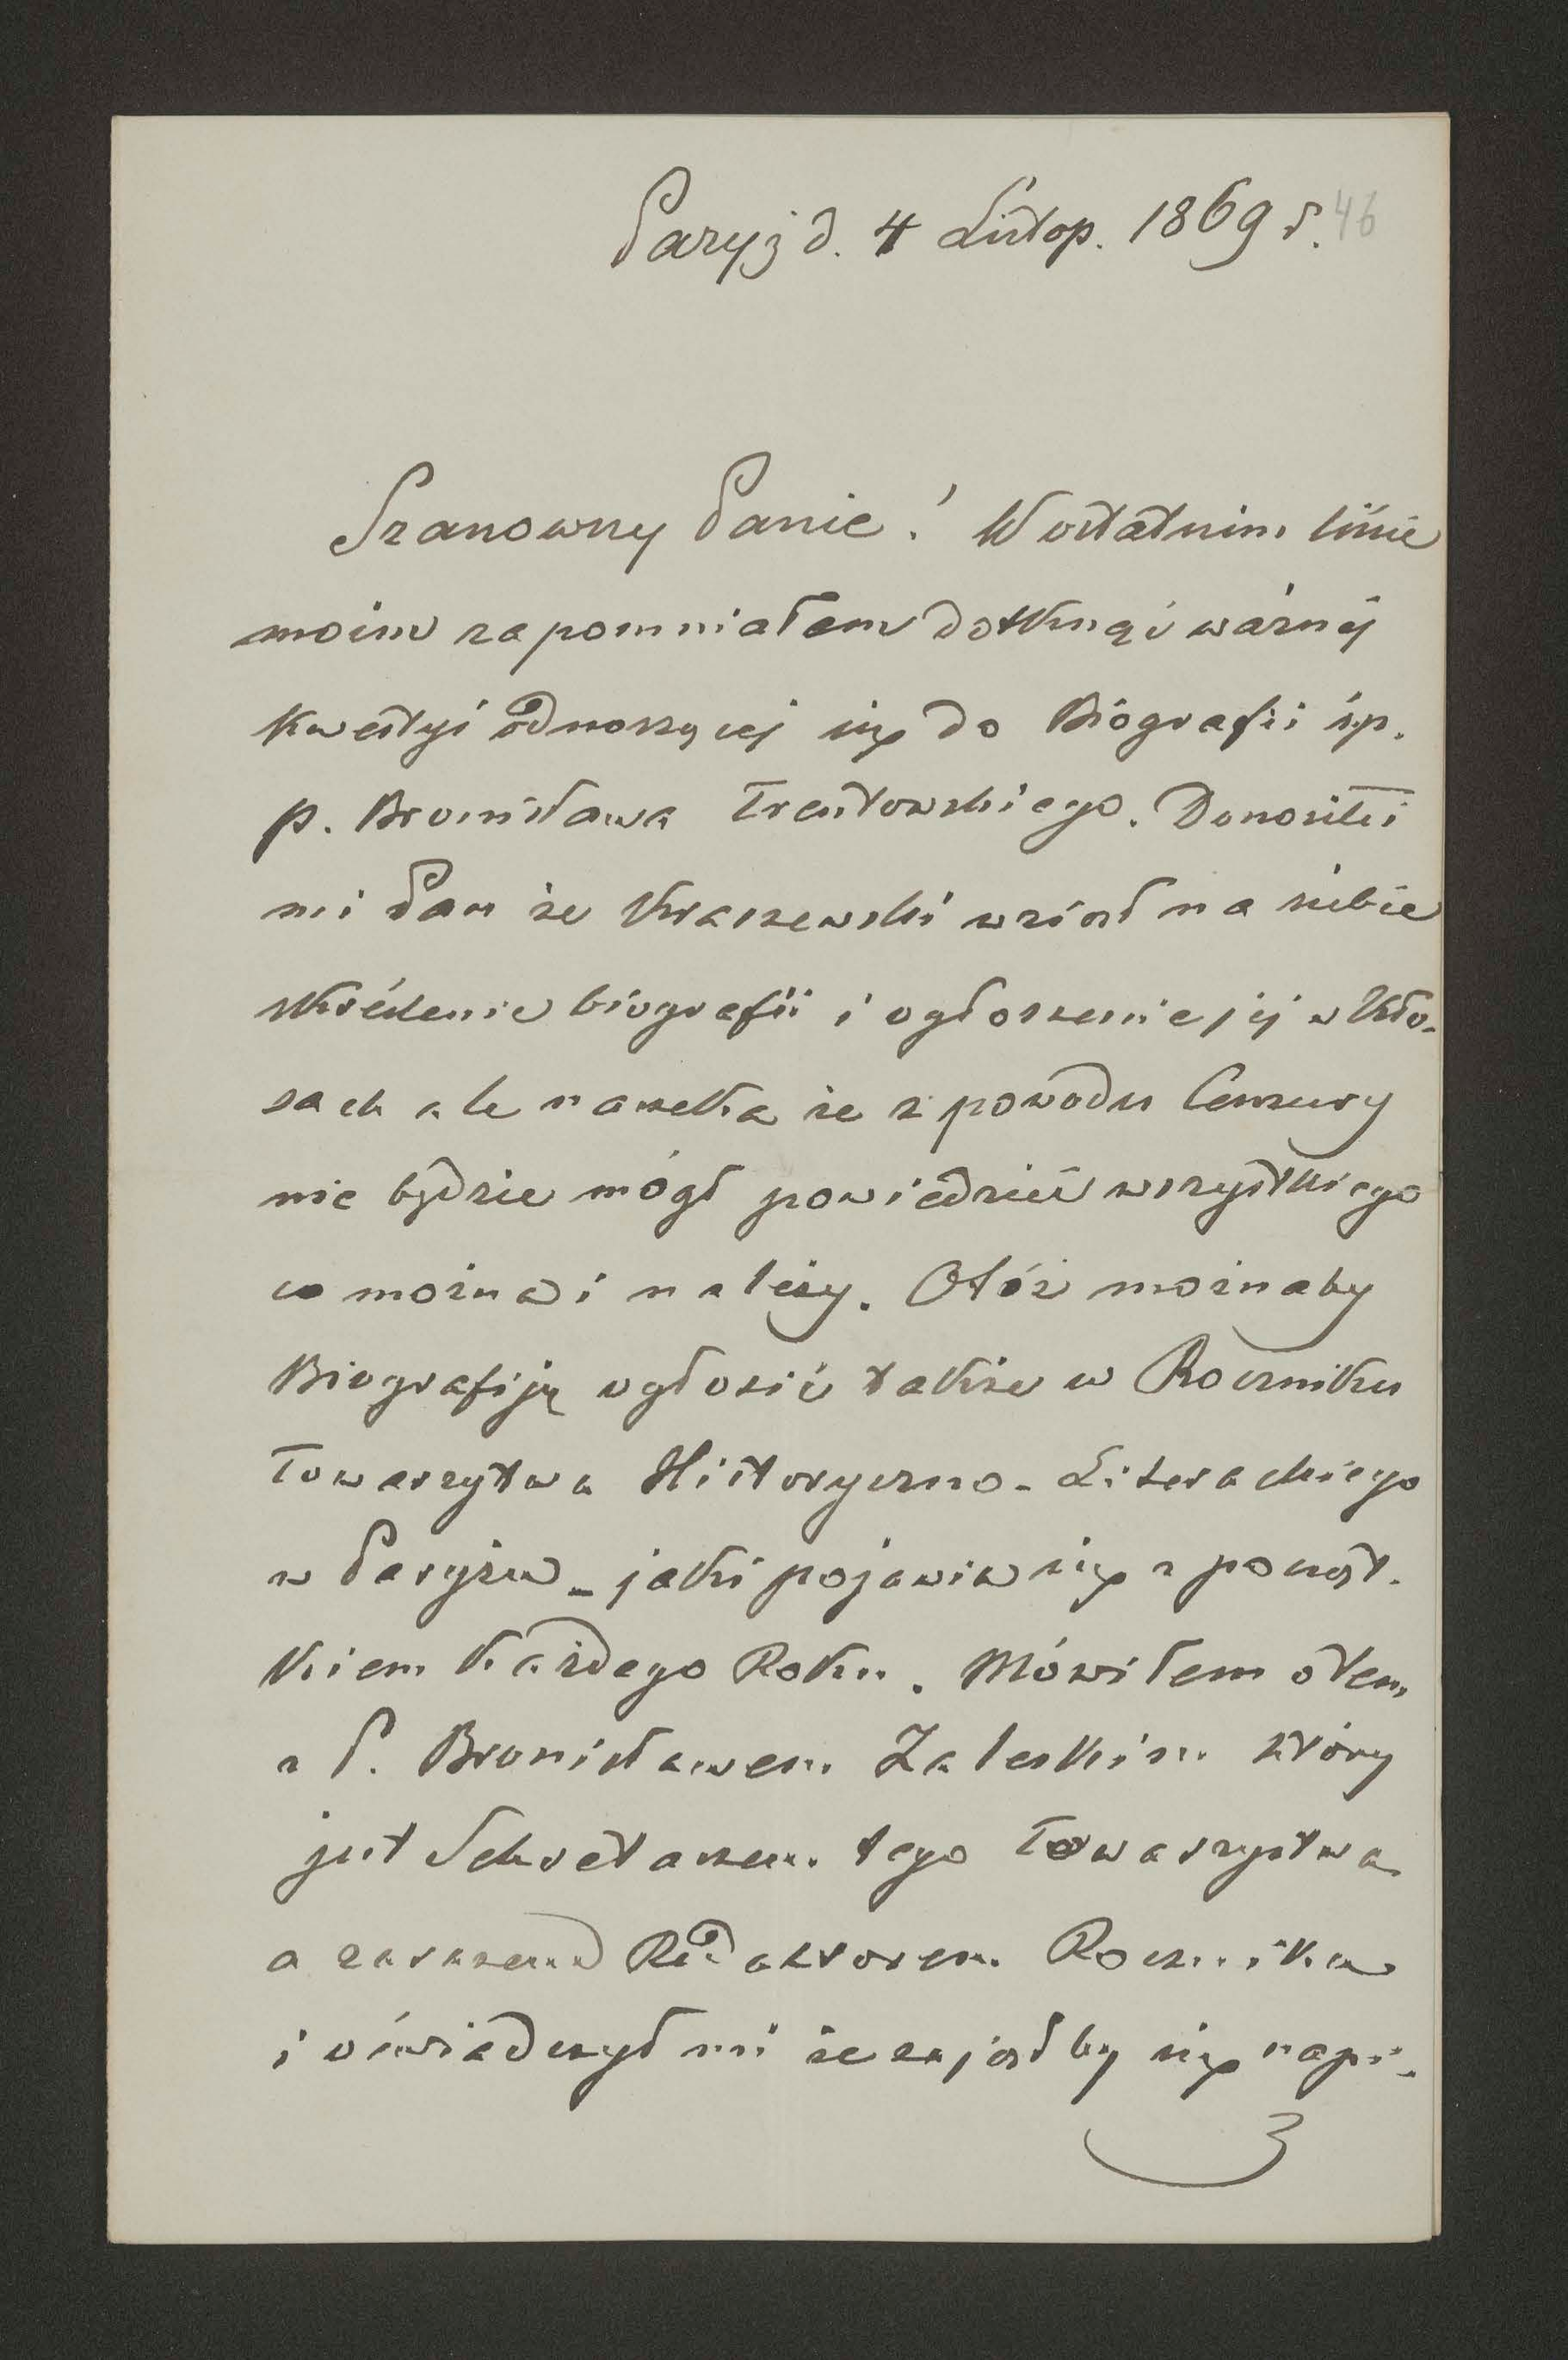 Paryż d. 4 Listop. 1869 r. 46
Szanowny Panie! W ostatnim liście
moim zapomniałem dotknąć ważnéj
kwestyi odnoszącej się do Biografii śp.
p. Bronisława Trentowskiego. Donosiłeś
mi Pan że Kraszewski wziął na siebie
skréślenie biografii i ogłoszenie jéj w Kło-
sach ale narzeka że z powodu Cenzury
nie będzie mógł powiedzieć wszystkiego
co można i należy. Otóż możnaby
Biografiję ogłosić także w Roczniku
Towarzystwa Historyczno-Literackiego
w Paryżu - jaki pojawia się z począt-
kiem każdego Roku. Mówiłem o tem
z P. Bronisławem Zaleskim który
jest Sekretarzem tego Towarzystwa
a zarazem Redaktorem Rocznika
i oświadczył mi że zająłby się napi-